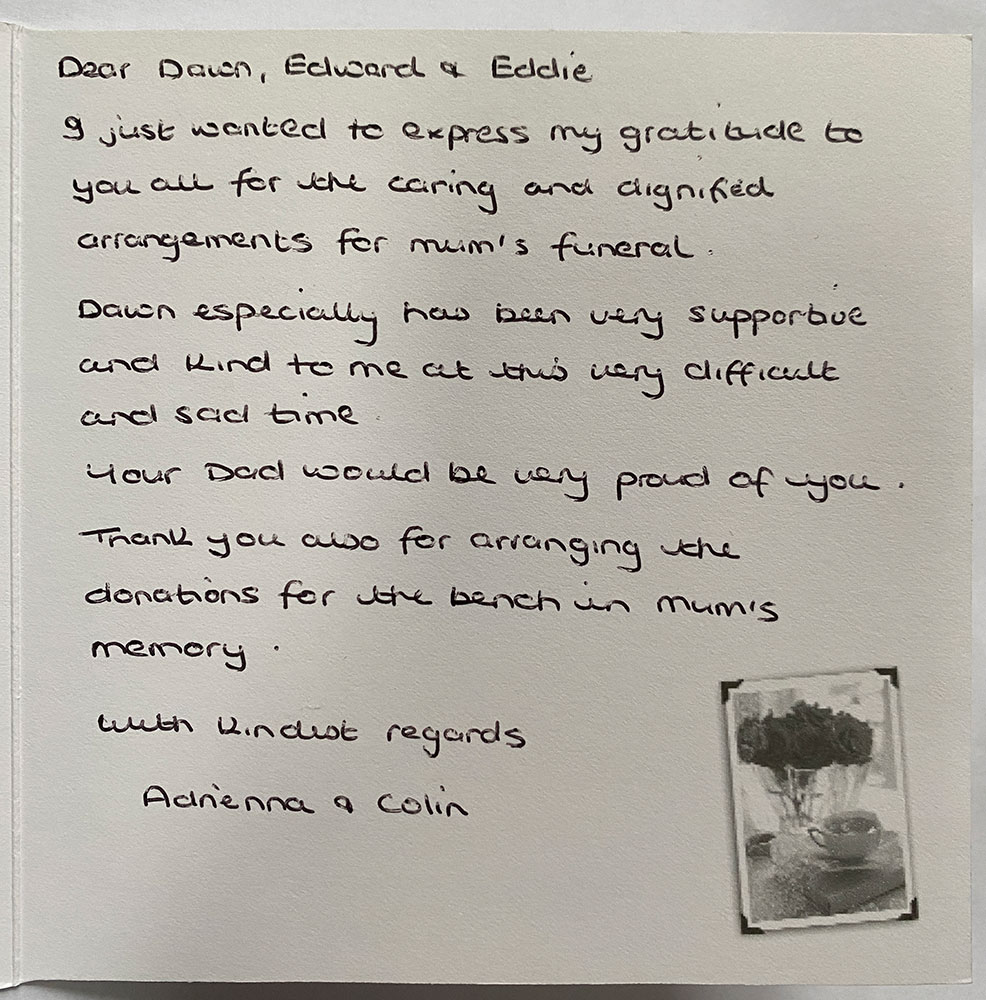 Dear Dawn, Edward & Eddie
I just wanted to express my gratitude to
you all for the caring and dignified
arrangements for mum's funeral.
Dawn especially has been very supportive
and kind to me at this very difficult
and sad time
Your Dad would be very proud of you.
Thank you also for arranging the
donations for the bench in mum's
memory.
With kindest regards
Adrienna & Colin